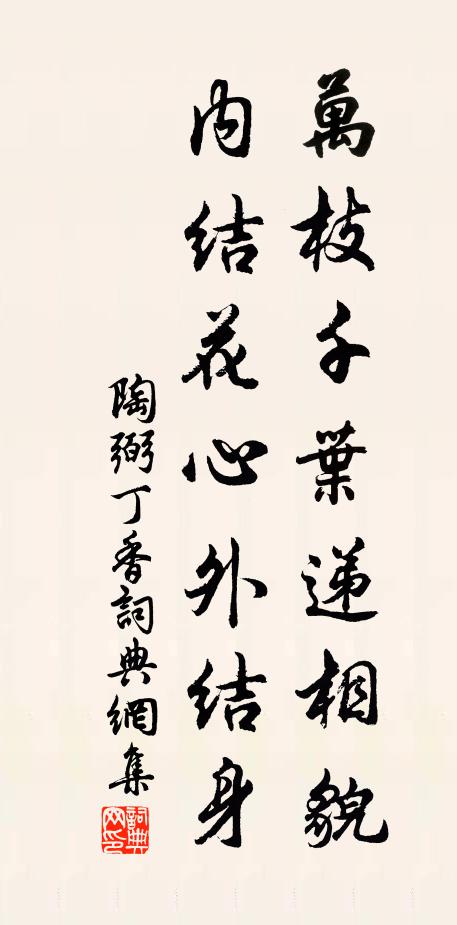 萬枝千葉递相貌
内结花心外结身
陶弼丁香詞典網集
詞典网印